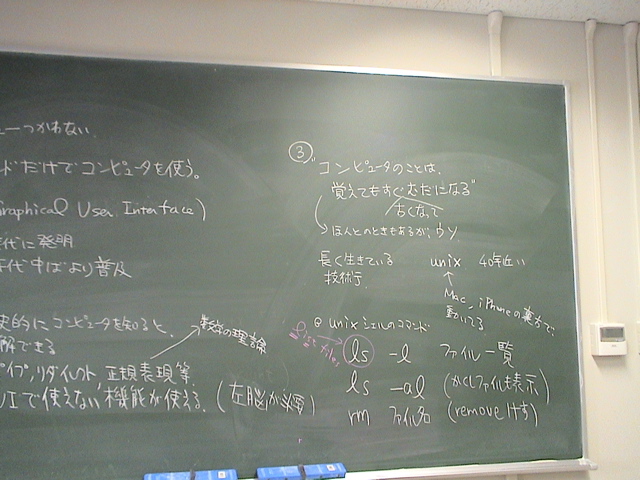 つかわない
ドだけでコンピュータを使う。
Graphical User Interface)
年代に発明
年代中ばより普及
史的にコンピュータを知ると、
解できる
数学の理論
パイプ,リダイレクト,正規表現等
UIで使えない機能が使える。(左脳が必要)
③
"コンピュータのことは、
覚えてもすぐむだになる"
古くなって
ほんとのときもあるが、ウソ
長く生きている
技術行
unix 40年近い
Mac, iPhoneの裏方で、
動いてる
@ unixシェルのコマンド
list files
ls -l ファイル一覧
ls -al (かくしファイルも表示)
rm ファイル名 (remove けす)